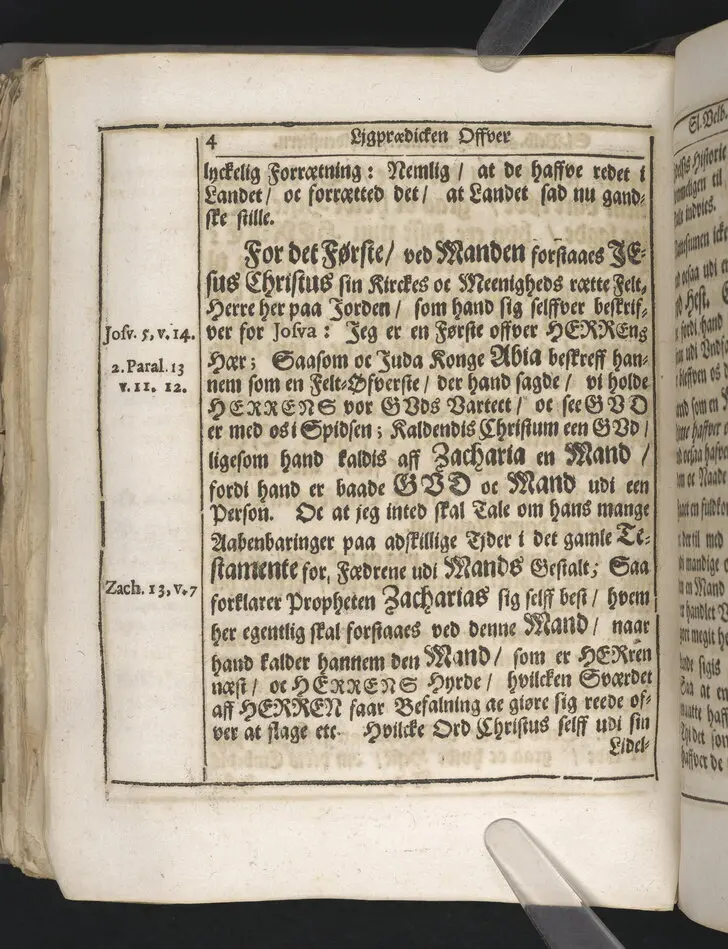 4 Ljgprædicken Offver
lyckelig Forrætning: Nemlig / at de haffve redet i
Landet / oc forrætted det / at Landet sad nu gand-
ske stille.
For det Første / ved Manden forstaaes JE-
sus Christus sin Kirckes oc Meenigheds rætte Felt-
Herre her paa Jorden / som hand sig selffver beskrif-
ver for Josva: Jeg er en Første offver HERRENs
Hær; Saasom oc Juda Konge Abia beskreff han-
nem som en Felt-Øfverste / der hand sagde / vi holde
HERRENS vor GVds Vartect / oc see GVD
er med os i Spidsen; Kaldendis Christum een GVd /
ligesom hand kaldis aff Zacharia en Mand /
fordi hand er baade GVD oc Mand udi een
Person. Oc at jeg inted skal Tale om hans mange
Aabenbaringer paa adskillige Tjder i det gamle Te-
stamente for, Fædrene udi Mands Gestalt; Saa
forklarer Propheten Zacharias sig self best / hvem
her egentlig skal forstaaes ved denne Mand / naar
hand kalder hannem den Mand / som er HERren
næst / oc HERRENS Hyrde / hvilcken Sværdet
aff HERREN faar Befalning ae giøre sig reede of-
ver at slage etc. Hvilcke Ord Christus selff udi sin
Lidel-
Josv. 5, v. 14.
2. Paral. 13
v. 11. 12.
Zach. 13, v. 7